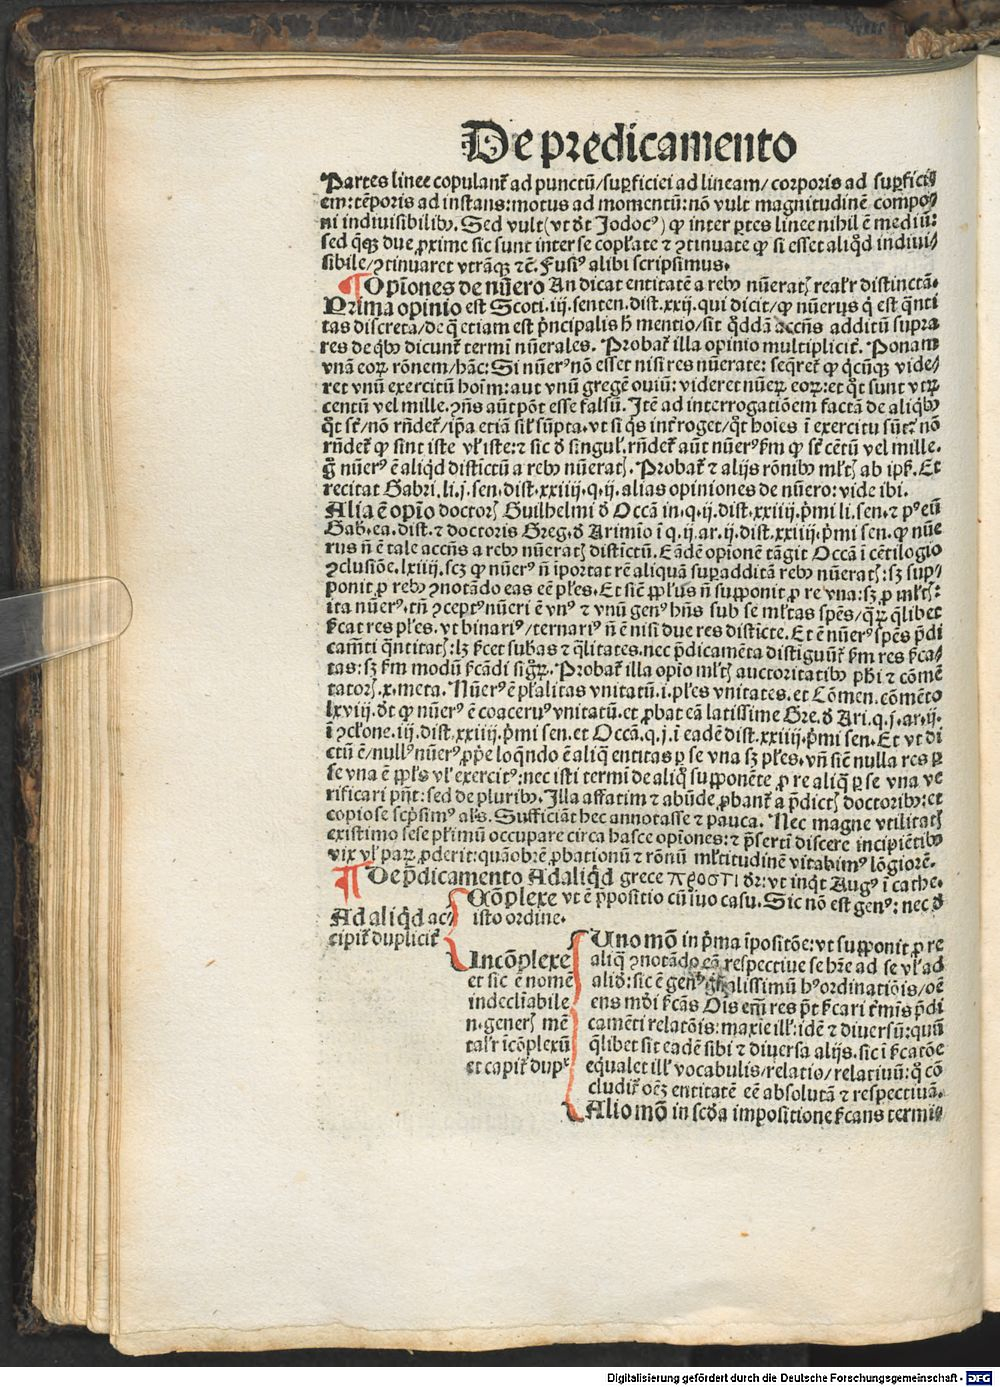 De predicamento
Partes linee copulant᷑ ad punctū/sup̱ficiei ad lineam/ corporis ad sup̱fici⸗
em: tēporis ad instans: motus ad momentū: nō vult magnitudinē compo⸗
ni indivisibilibꝫ. Sed vult (vt dt Jodocꝰ) ꝙ inter ꝑtes linee nihil ē mediū:
sed q̄qꝫ due ꝓxime sic sunt inter se copl'ate ⁊ ꝯtinuate ꝙ si esset aliqd indivi⸗
sibile/ꝯtinuaret vtrāqꝫ ⁊c̄. Fusiꝰ alibi scripsimus.
¶ Opiniones de nūero An dicat entitatē a rebꝫ nūeratꝭ realr̄ distinctā.
Prima opinio est Scoti. iij. senten. dist. xxij. qui dicit/ꝙ nūerus q̇ est q̄nti
tas discreta/de q̄ etiam est p̄ncipalis h̄ mentio/sit q̇ddā accn̄s additū supra
res de qbꝫ dicunt᷑ termī nūerales. Probat᷑ illa opinio multiplicit᷑. Ponam
vnā eoꝝ rōnem/hāc: Si nūerꝰ nō esset nisi res nūerate: seq̄ret᷑ ꝙ q̇cūqꝫ vide⸗
ret vnū exercitū hoīm: aut vnū gregē ouiū: videret nūeꝝ eoꝝ: et q̇t sunt vtꝝ
centū vel mille. ꝯn̄s aūt pōt esse falsū. Itē ad interrogatiōem factā de aliqbꝫ
q̇t st᷑/ nō rn̄det᷑/ip̄a etiā sil' sūpta. vt si q̇s int᷑roget/q̇t hoīes ī exercitu sūt: nō
rn̄det᷑ ꝙ sint iste vl' iste: ⁊ sic đ singul'. rn̄det᷑ aūt nūerꝰ ẜm ꝙ st᷑ cētū vel mille.
g̊ nūerꝰ ē aliqd distictū a rebꝫ nūeratꝭ. Probat᷑ ⁊ alijs rōnibꝫ ml'tꝭ ab ipẜ. Et
recitat Gabri. li. j. sen. dist. xxiiij. q. ij. alias opiniones de nūero: vide ibi.
Alia ē opīo doctorꝭ Guilhelmi đ Occā in. q. ij. dist. xxiiij. p̄mi li. sen. ⁊ pꝰ eū
Gab. ea. dist. ⁊ doctoris Greg. đ Arimio ī q. ij. ar. ij. dist. xxiiij. p̄mi sen. ꝙ nūe
rus n̄ ē tale accn̄s a rebꝫ nūeratꝭ distictū. Eādē opionē tāgit Occā ī cētilogio
ꝯclusiōe. lxiiij. scꝫ ꝙ nūerꝰ n̄ īportat rē aliquā sup̱additā rebꝫ nūeratꝭ: sꝫ sup⸗
ponit ꝓ rebꝫ ꝯnotādo eas eē pl'es. Et sic pp̄l'us n̄ supponit ꝓ re vna: sꝫ ꝓ ml'tꝭ:
ita nūerꝰ. tn̄ ꝯceptꝰ nūeri ē vnꝰ ⁊ vnū genꝰ hn̄s sub se ml'tas sp̄es/q̄ꝝ q̄libet
ẜcat res pl'es. vt binariꝰ/ternariꝰ n̄ ē nisi due res disticte. Et ē nūerꝰ sp̄es p̄di
cam̄ti q̄ntitatꝭ: lꝫ ẜcet subās ⁊ q̄litates. nec p̄dicamēta distiguūt᷑ ẜm res ẜca⸗
tas: sꝫ ẜm modū ẜcādi sig̊ꝝ. Probat᷑ illa opio ml'tꝭ auctoritatibꝫ phi ⁊ cōmē
tatorꝭ. x. meta. Nūerꝰ ē pl'alitas vnitatū. i. pl'es vnitates. et Cōmen. cōmēto
lxviij. dt ꝙ nūerꝰ ē coaceruꝰ vnitatū. et ꝓbat eā latissime Gre. đ Ari. q. j. ar. ij.
ī ꝯcl'one. iij. dist. xxiiij. p̄mi sen. et Occā. q. j. ī eadē dist. xxiiij. p̄mi sen. Et vt di
ctū ē/nullꝰ nūerꝰ ꝓp̄e loq̄ndo ē aliq̄ entitas ꝑ se vna sꝫ pl'es. vn̄ sic̄ nulla res ꝑ
se vna ē pp̄l's vl' exercitꝰ: nec isti termī de aliq̊ supponēte ꝓ re aliq̄ ꝑ se vna ve
rificari pn̄t: sed de pluribꝫ. Illa affatim ⁊ abūde ꝓbant᷑ a p̄dictꝭ doctoribꝫ: et
copiose scp̄simꝰ al's. Sufficiāt hec annotasse ⁊ pauca. Nec magne vtilitatꝭ
existimo sese pl'imū occupare circa hasce opiōnes: ⁊ p̄sertī discere incipiētibꝫ
vix vl' paꝝ ꝓderit: quāobrē ꝓbationū ⁊ rōnū ml'titudinē vitabimꝰ lōgiorē.
¶ De p̄dicamento Ad aliqd grece προστι dr̄: vt inq̇t Augꝰ ī cathe.
Ad aliqd ac⸗
cipit᷑ duplicit᷑
Cōplexe vt ē p̄positio cū suo casu. Sic nō est genꝰ: nec đ
isto ordine.
Incōplexe
et sic ē nomē
indeclīabile
n. generꝭ mē
tal'r īcōplexū
et capit᷑ dupl'r
Uno mō in p̄ma īpositōe: vt supponit ꝓ re
aliq̄ ꝯnotādo eā respective se hr̄e ad se vl' ad
aliđ: sic ē genꝰ gn̄alissimū hꝰ ordinatiōis/oē
ens mōi ẜcās Ois em̄ res pt̄ ẜcari t᷑mīs p̄di
camēti relatōis: maxīe ill': idē ⁊ diversū: quū
q̄libet sit eadē sibi ⁊ diversa alijs. sic ī ẜcatōe
eq̇valet ill' vocabulis/relatio/relativū: q̇ cō
cludit᷑ oēꝫ entitatē eē absolutā ⁊ respectivā.
Alio mō in scđa impositione ẜcans termi⸗
Digitalisierung gefördert durch die Deutsche Forschungsgemeinschaft - DFG